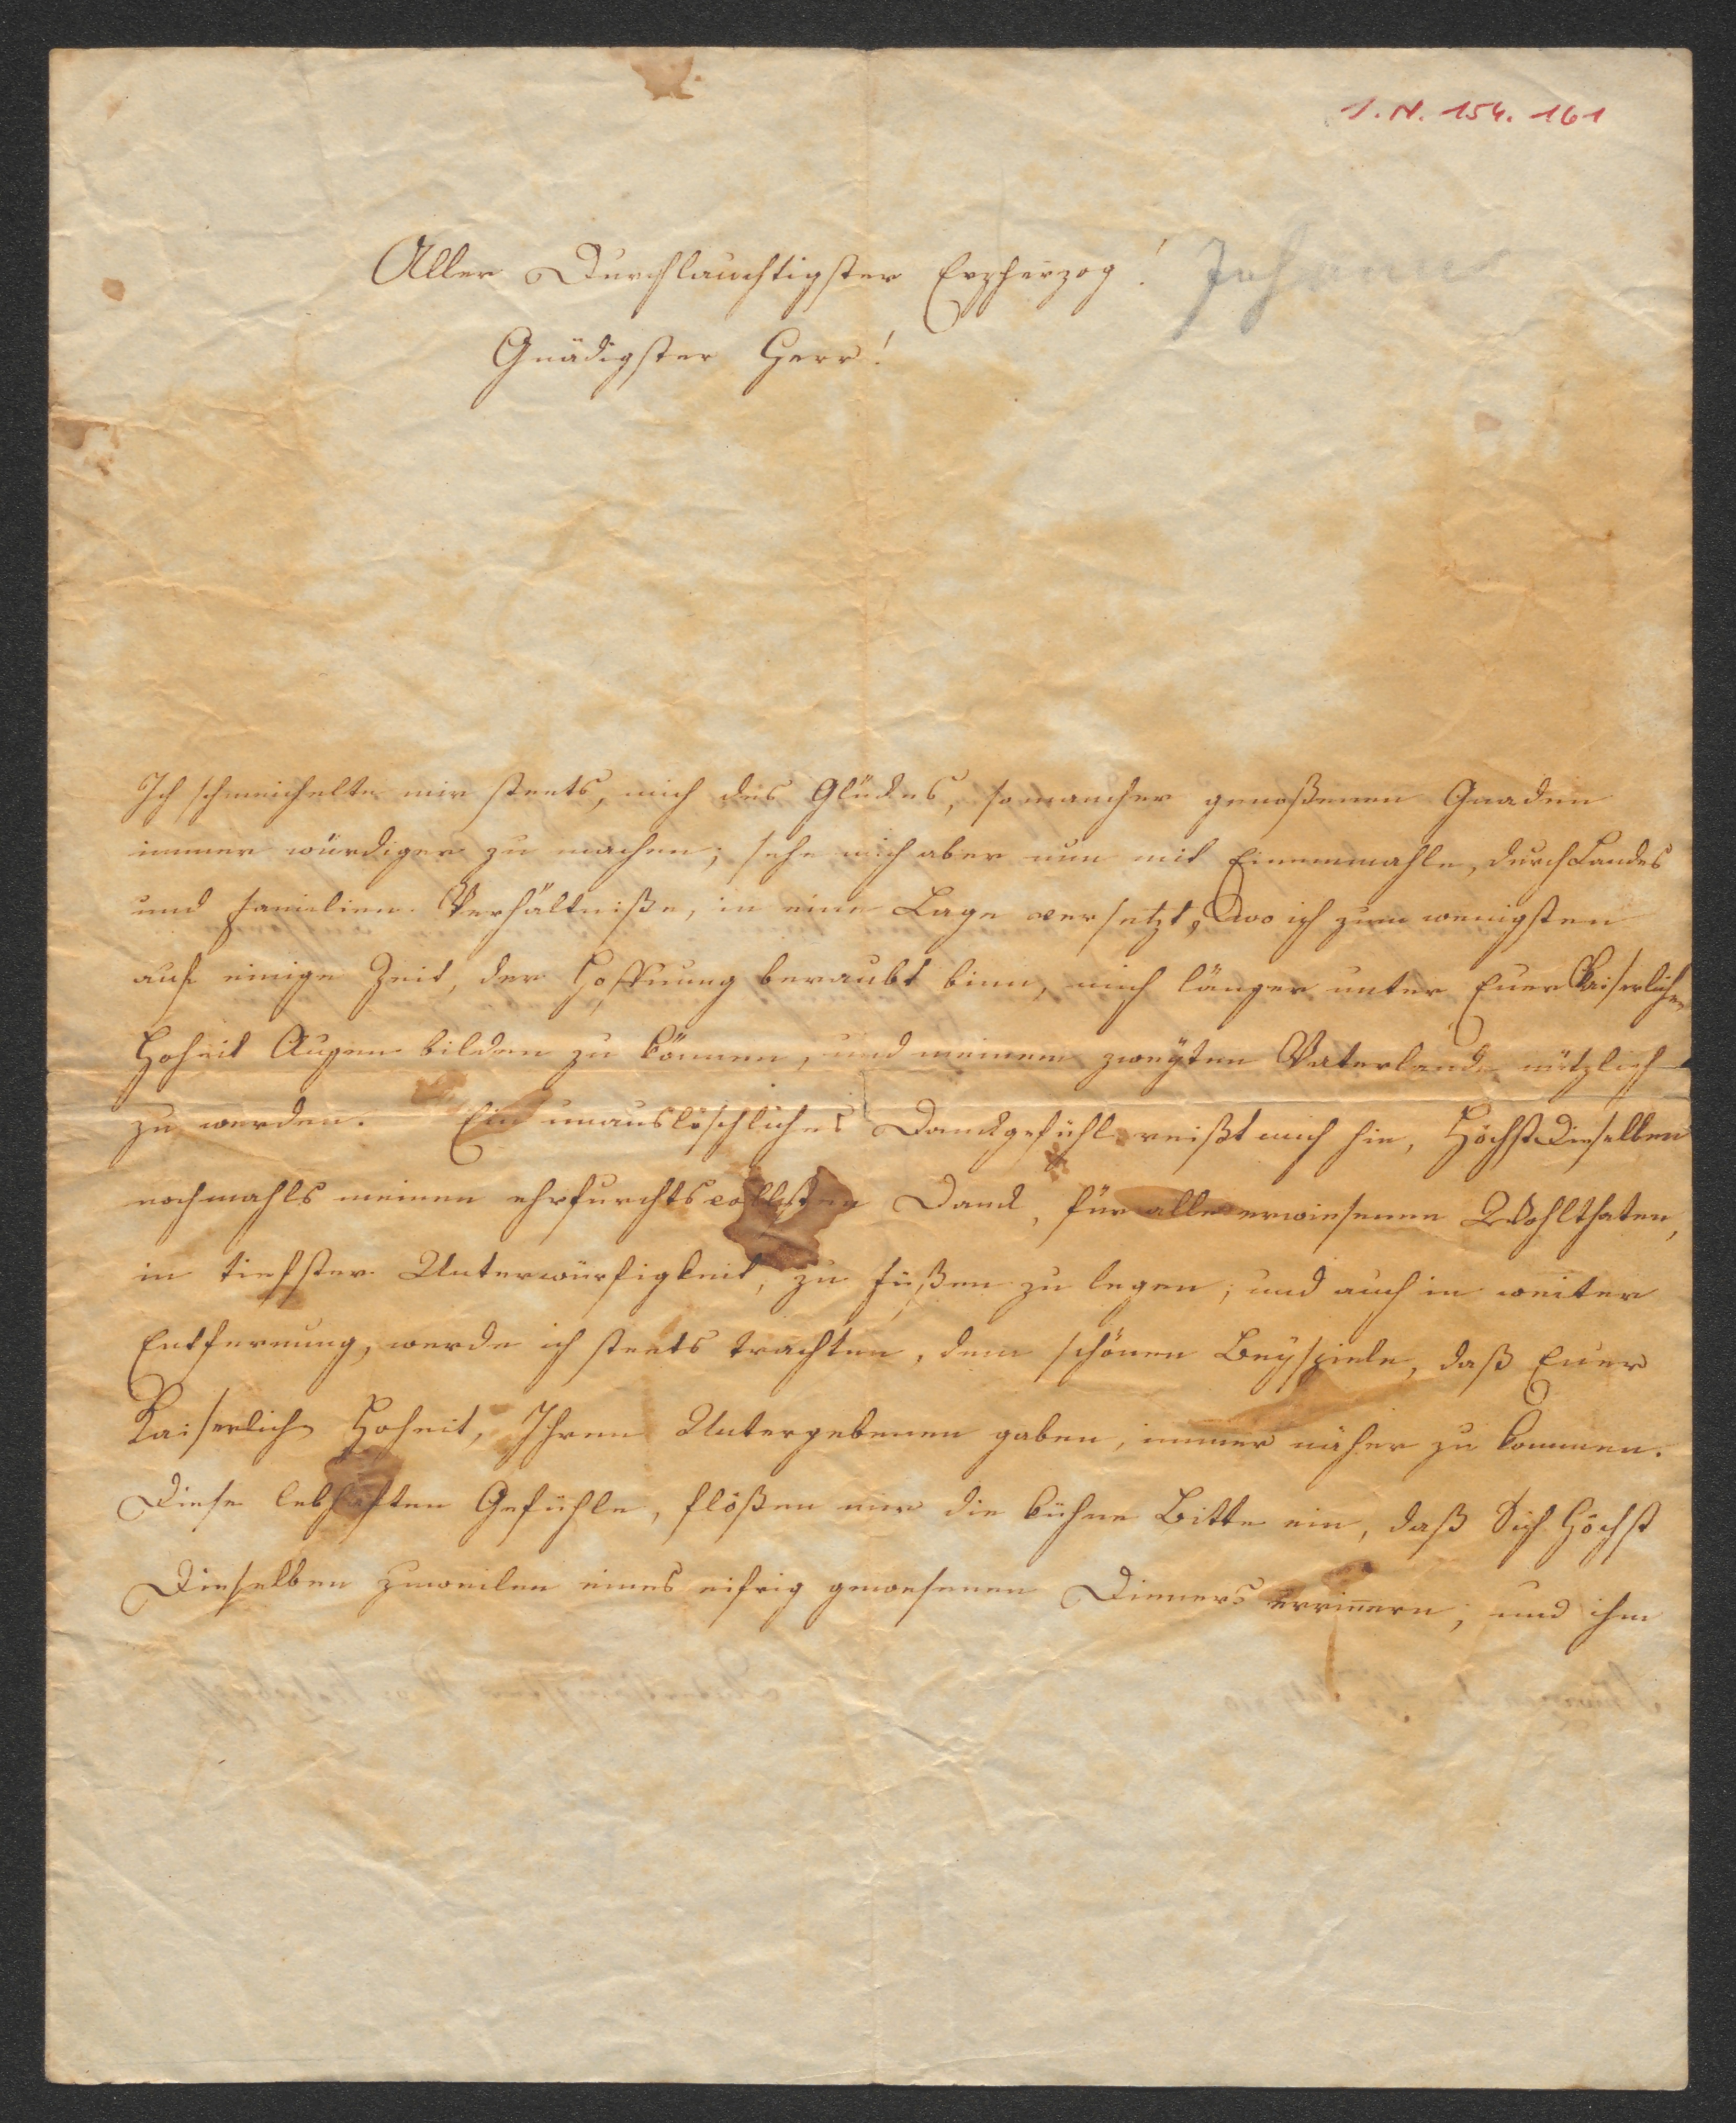 I. N. 154. 161
Aller Durchlauchtigster Erzherzog! Johann
Gnädigster Herr!
Ich schmeichelte mir steets, mich des Glückes, so mancher genoßenen Gnaden
immer würdiger zu machen; sehe mich aber nun mit Einemmahle, durch Landes
und Familien Verhältniße, in eine Lage versetzt, wo ich zum wenigsten
auf einige Zeit, der Hoffnung beraubt binn, mich länger unter Euer Kaiserlichen
Hoheit Augen bilden zu können, und meinem zweyten Vaterlande nützlich
zu werden. Ein unauslöschliches Dankgefühl reißt mich hin, Höchstdieselben
nochmahls meinen ehrfurchtsvollsten Dank, für alle erwiesenen Wohlthaten,
in tiefster Unterwürfigkeit, zu Füßen zu legen; und auch in weiter
Entfernung, werde ich steets trachten, dem schönen Beyspiele, daß Euer
Kaiserliche Hoheit, Ihren Untergebenen gaben, immer näher zu kommen.
Diese lebhaften Gefühle, flößen mir die kühne Bitte ein, daß Sich Höchst
Dieselben zuweilen eines eifrig gewesenen Dieners errinern; und ihm